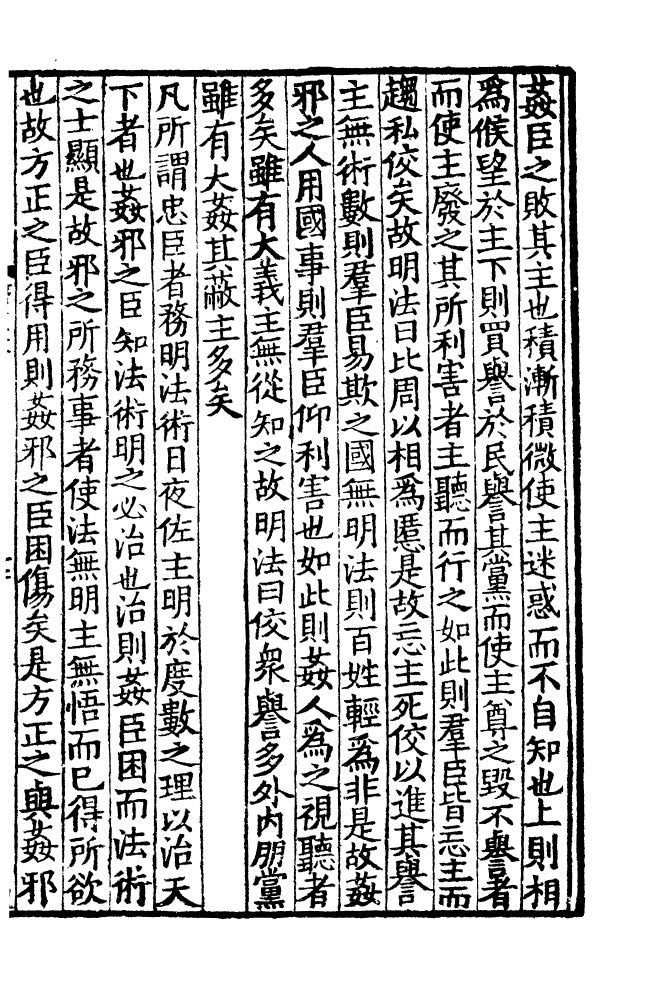 姦臣之敗其主也積漸積微使主迷惑而不自知也上則相
爲候望於主下則買譽於民譽其黨而使主尊之毀不譽者
而使主廢之其所利害者主聽而行之如此則羣臣皆忘主而
趨私佼矣故明法曰比周以相爲慝是故忘主死佼以進其譽
主無術數則羣臣易欺之國無明法則百姓輕爲非是故姦
邪之人用國事則羣臣仰利害也如此則姦人爲之視聽者
多矣雖有大義主無從知之故明法曰佼衆譽多外内朋黨
雖有大姦其蔽主多矣
凡所謂忠臣者務明法術日夜佐主明於度數之理以治天
下者也姦邪之臣知法術明之必治也治則姦臣困而法術
之士顯是故邪之所務事者使法無明主無悟而已得所欲
也故方正之臣得用則姦邪之臣困傷矣是方正之與姦邪